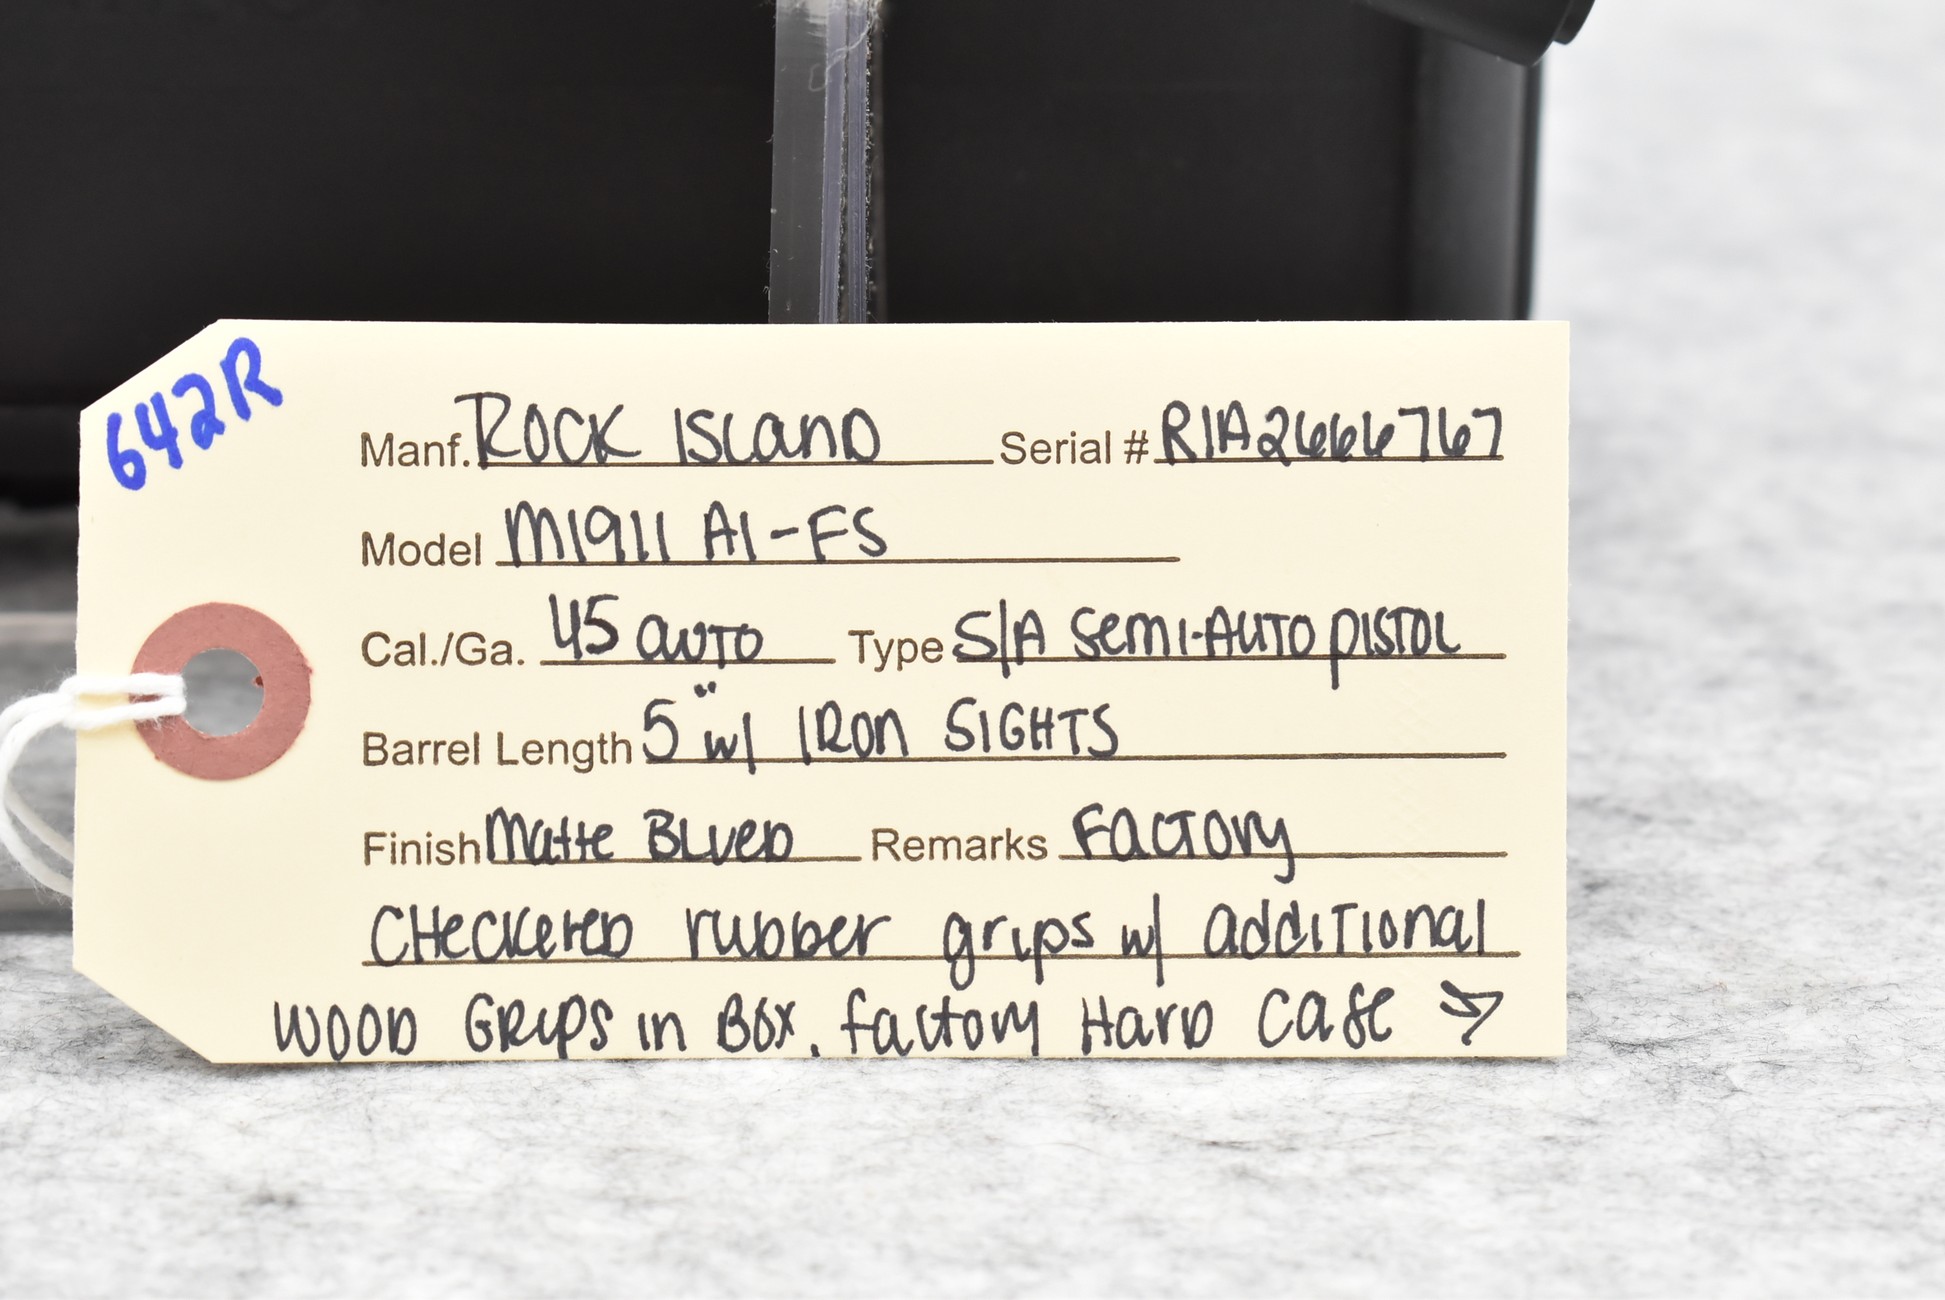 642R
Manf. Rock Island Serial # RIA2666767
Model M1911 A1-FS
Cal./Ga. 45 auto Type S/A Semi-Auto Pistol
Barrel Length 5" w/ Iron Sights
Finish Matte Blued Remarks Factory
Checkered rubber grips w/ additional
wood Grips in Box. factory Hard case →